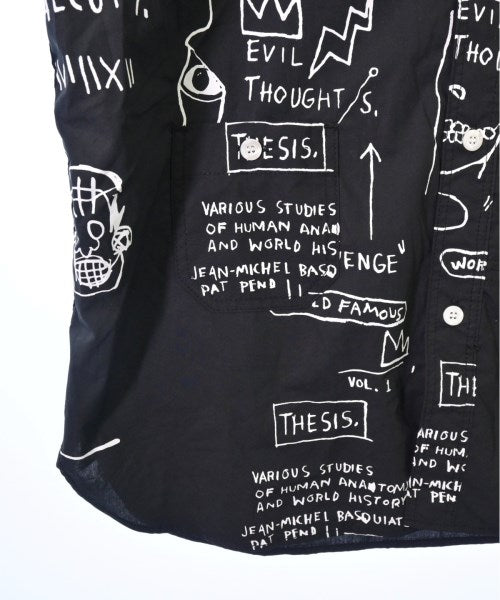 EVIL
THOUGHTS.
THESIS.
VARIOUS STUDIES
OF HUMAN ANA
AND WORLD HIS
JEAN-MICHEL BASQ
PAT PEND
ENGE"
D FAMOUS
VOL. 1
THESIS.
VARIOUS STUDIES
OF HUMAN ANATOM
AND WORLD HISTORY
JEAN-MICHEL BASQUIAT
PAT PEND
EVI
THO
WOR
THE
ARIOUS
OF HUM
AND WO
N-MICH
AT PEN